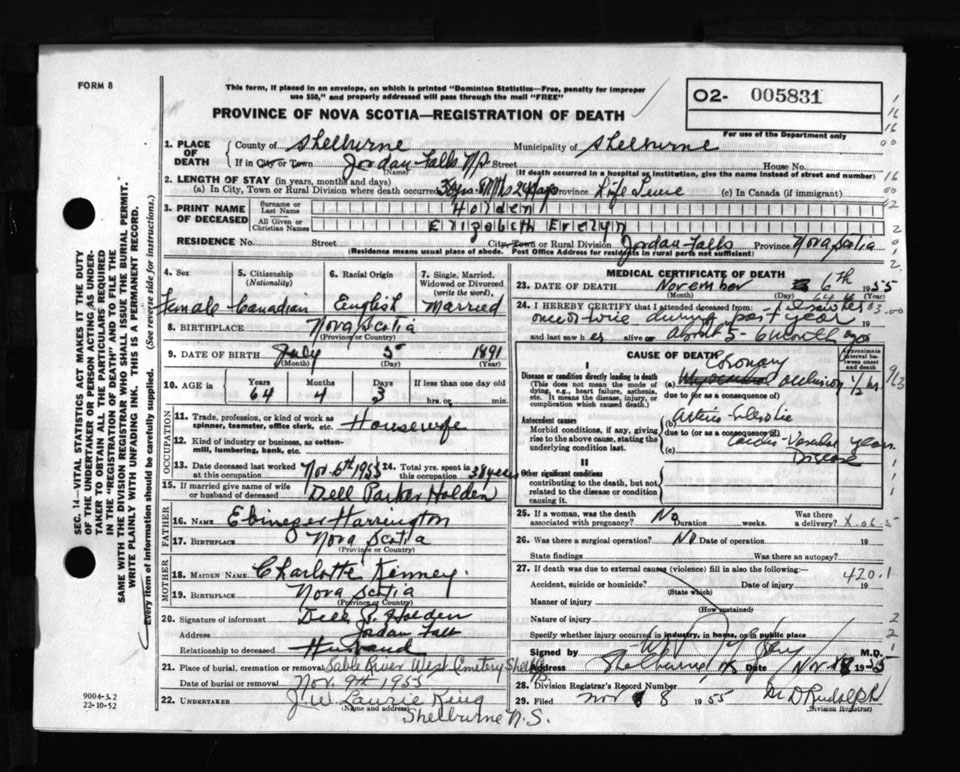 FORM 8
This form, if placed in an envelope, on which is printed "Dominion Statistics—Free, penalty for improper
use $50," and properly addressed will pass through the mail "FREE"
PROVINCE OF NOVA SCOTIA—REGISTRATION OF DEATH
02- 005831
For use of the Department only
1. PLACE OF DEATH
County of Shelburne Municipality of Shelburne
If in City or Town Jordan Falls NS Street House No.
(Name) (If death occurred in a hospital or institution, give the name instead of street and number)
2. LENGTH OF STAY (in years, months and days)
(a) In City, Town or Rural Division where death occurred 38 yrs. Province Life Time (c) In Canada (if immigrant)
3. PRINT NAME OF DECEASED
Surname or Last Name Holden
All Given or Christian Names Elizabeth Evelyn
RESIDENCE No. Street City, Town or Rural Division Jordan Falls Province Nova Scotia
(Residence means usual place of abode. Post Office Address for residents in rural parts not sufficient)
4. Sex
Female
5. Citizenship (Nationality)
Canadian
6. Racial Origin
English
7. Single, Married, Widowed or Divorced (write the word),
Married
8. BIRTHPLACE Nova Scotia
(Province or Country)
9. DATE OF BIRTH July 5 1891
(Month) (Day) (Year)
10. AGE is Years 64 Months 4 Days 3 If less than one day old
hrs. or min.
OCCUPATION
11. Trade, profession, or kind of work as
spinner, teamster, office clerk, etc. Housewife
12. Kind of industry or business, as cotton-
mill, lumbering, bank, etc.
13. Date deceased last worked at this occupation Nov. 6th 1955
14. Total yrs. spent in this occupation 38 years
15. If married give name of wife
or husband of deceased Dell Parker Holden
FATHER
16. NAME Ebinezer Harrington
17. BIRTHPLACE Nova Scotia
(Province or Country)
MOTHER
18. MAIDEN NAME Charlotte Kenney.
19. BIRTHPLACE Nova Scotia
(Province or Country)
20. Signature of informant Dell P. Holden
Address Jordan Falls
Relationship to deceased Husband
21. Place of burial, cremation or removal Sable River West Cemetery
Date of burial or removal Nov. 9th 1955
22. UNDERTAKER J. W. Laurie King
(Name and address)
Shelburne N.S.
MEDICAL CERTIFICATE OF DEATH
23. DATE OF DEATH November 6th 1955
(Month) (Day) (Year)
24. I HEREBY CERTIFY that I attended deceased from:
once or twice during past year
and last saw her alive on about 5-6 months ago
CAUSE OF DEATH
Approximate interval between onset and death
I
Disease or condition directly leading to death
(This does not mean the mode of dying, e.g., heart failure, asthenia, etc. It means the disease, injury, or complication which caused death.)
(a) Coronary occlusion 1/2 hr.
due to (or as a consequence of)
Antecedent causes
Morbid conditions, if any, giving rise to the above cause, stating the underlying condition last.
(b) Arterio Sclerotic
due to (or as a consequence of)
(c) Cardio-Vascular Disease years
II
Other significant conditions
contributing to the death, but not related to the disease or condition causing it.
25. If a woman, was the death
associated with pregnancy? No Duration weeks. Was there a delivery?
26. Was there a surgical operation? No Date of operation 19
State findings Was there an autopsy?
27. If death was due to external causes (violence) fill in also the following:-
420.1
Accident, suicide or homicide? Date of injury 19
(State which)
Manner of injury
(How sustained)
Nature of injury
Specify whether injury occurred in industry, in home, or in public place
Signed M.D.
Address Shelburne NS Date Nov 8 1955
28. Division Registrar's Record Number
29. Filed Nov 8 1955
(Division Registrar)
SEC. 14—VITAL STATISTICS ACT MAKES IT THE DUTY
OF THE UNDERTAKER OR PERSON ACTING AS UNDER-
TAKER TO OBTAIN ALL THE PARTICULARS REQUIRED
IN THE "REGISTRATION OF DEATH" AND TO FILE THE
SAME WITH THE DIVISION REGISTRAR WHO SHALL ISSUE THE BURIAL PERMIT.
WRITE PLAINLY WITH UNFADING INK. THIS IS A PERMANENT RECORD.
Every item of information should be carefully supplied. (See reverse side for instructions.)
9004-3.2
22-10-52